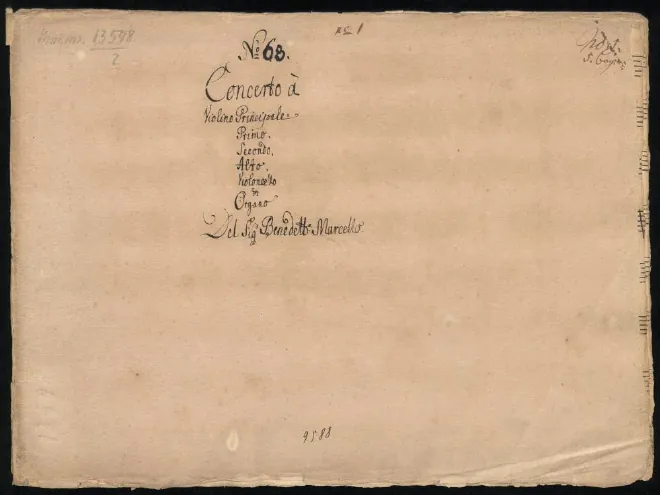 13598
2
No 68.
Concerto à
Violino Principale
Primo.
Secondo.
Alto.
Violoncello
Organo
Del Sig Benedetto Marcello
9588